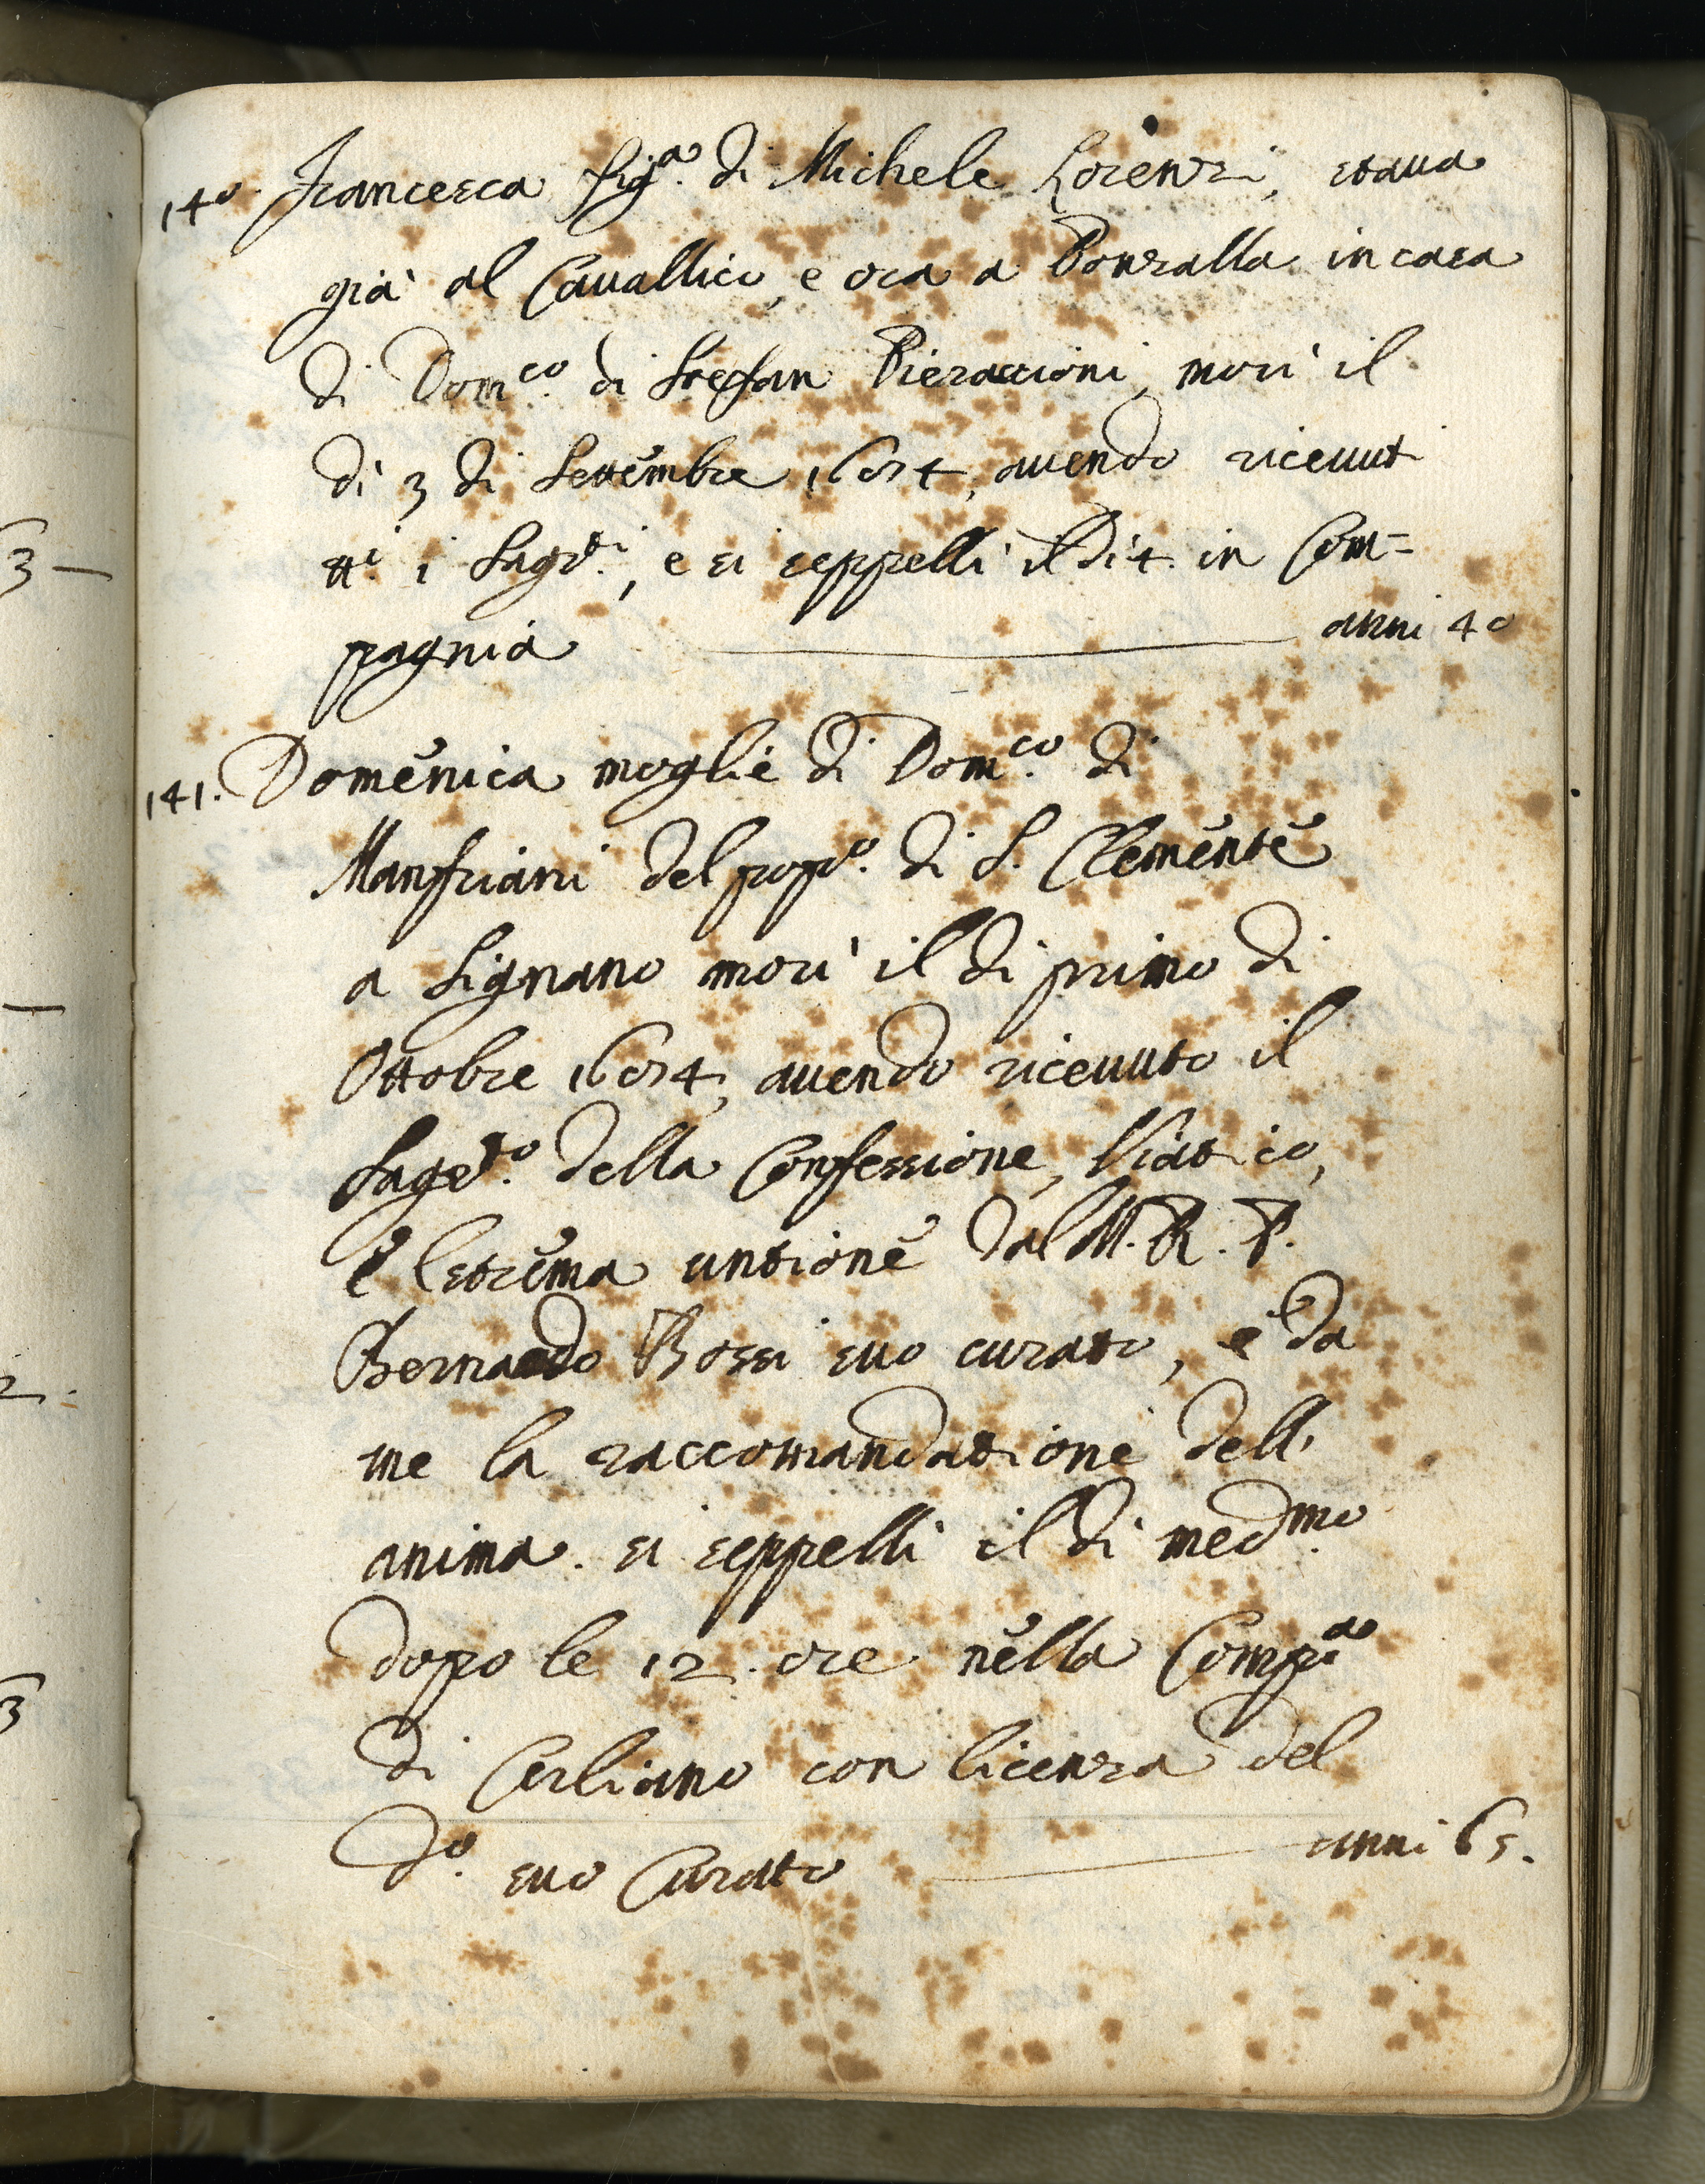 140. Francesca fig.a di Michele Lorenzi, staua
già al Cauallico, e ora a Ponzalla in casa
di Dom.co di Stefan Pieraccioni, morì il
dì 3 di Settembre 1674, auendo riceuut
tt.i i Sagr.ti, e si seppellì il dì 4. in Com=
pagnia anni 40
141. Domenica moglie di Dom.co di
Manfriani del pop.o di S. Clemente
a Signano morì il di primo di
Ottobre 1674, auendo riceuuto il
Sagr.to della Confessione, Viatico,
e lestrema untione dal M. R. P.
Bernardo Bossi suo curato, e da
me la raccomandatione dell'
anima. si seppellì il di med.mo
dopo le 12. ore nella Comp.a
di Cerliano con licenza del
d.o suo Curato anni 65.
3
3